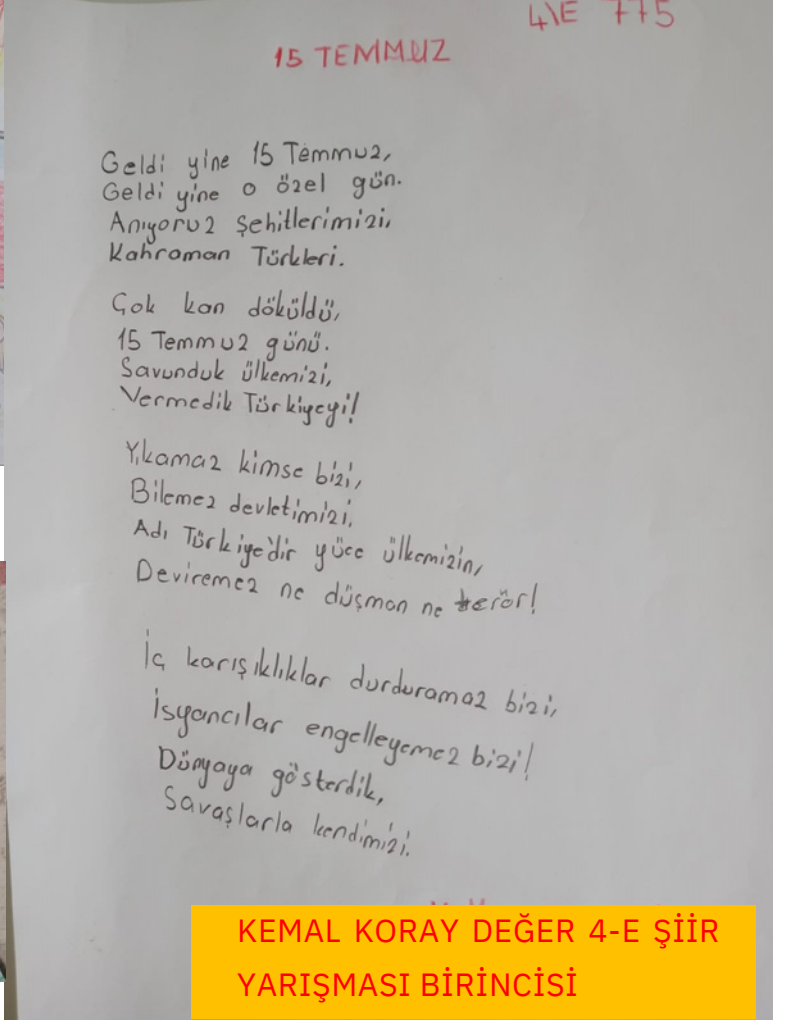 4\E 775
15 TEMMUZ
Geldi yine 15 Temmuz,
Geldi yine o özel gün.
Anıyoruz şehitlerimizi,
Kahraman Türkleri.
Çok kan döküldü,
15 Temmuz günü.
Savunduk ülkemizi,
Vermedik Türkiyeyi!
Yıkamaz kimse bizi,
Bilemez devletimizi.
Adı Türkiye'dir yüce ülkemizin,
Deviremez ne düşman ne terör!
İç karışıklıklar durduramaz bizi,
İsyancılar engelleyemez bizi!
Dünyaya gösterdik,
Savaşlarla kendimizi.
KEMAL KORAY DEĞER 4-E ŞİİR
YARIŞMASI BİRİNCİSİ